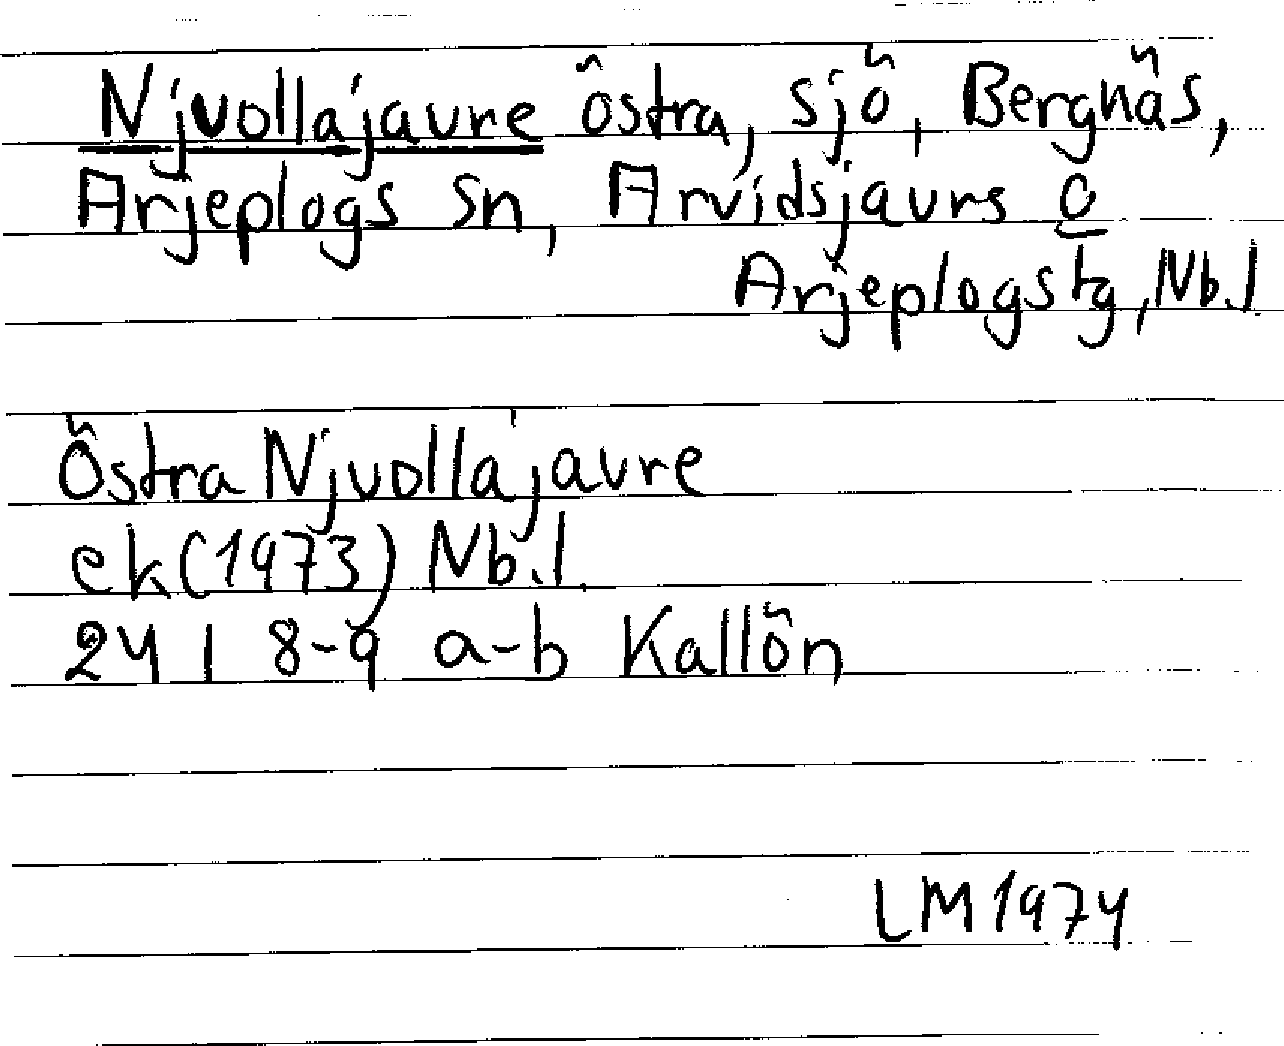 Njvollajaure östra, sjö, Bergnäs,
Arjeplogs sn, Arvidsjaurs o
Arjeplogs tg, Nb.l.
Östra Njvollajaure
ek (1973) Nb.l.
24 I 8-9 a-b Kallön
LM 1974